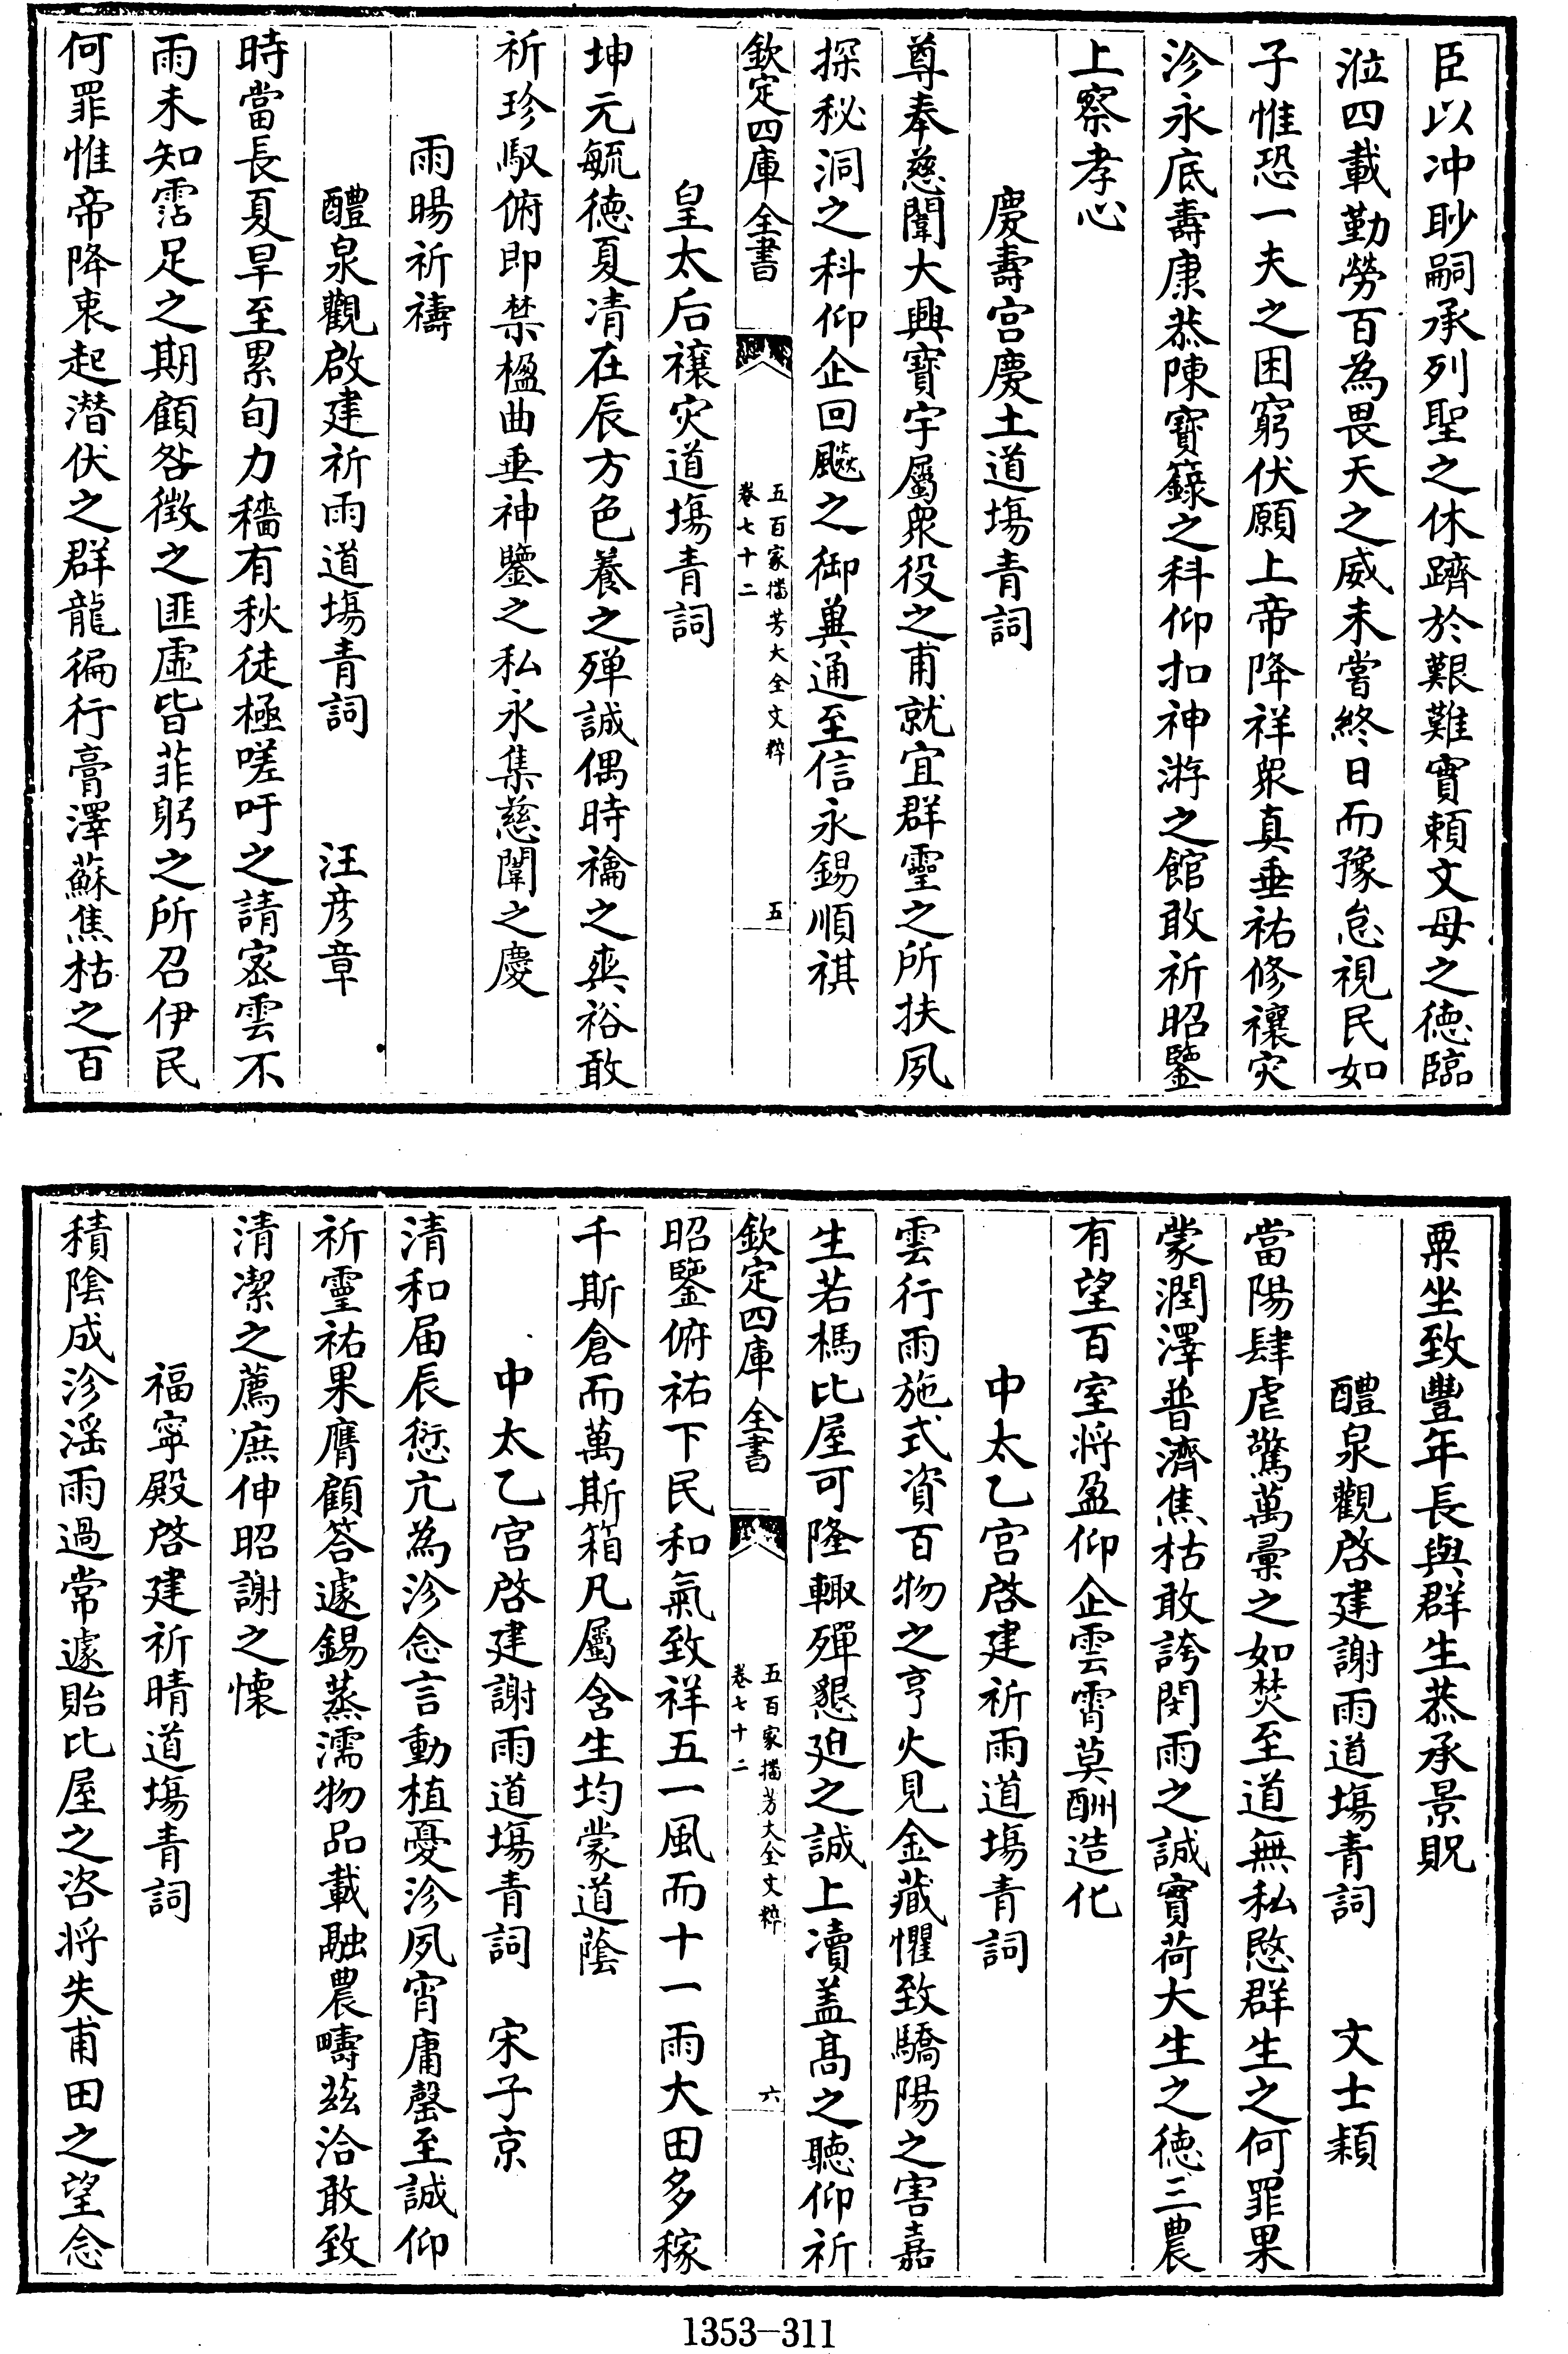 臣以冲眇嗣承列聖之休躋於艱難實頼文母之徳臨
涖四載勤勞百為畏天之威未嘗終日而豫怠視民如
子惟恐一夫之困窮伏願上帝降祥衆真垂祐修禳灾
沴永底壽康恭陳寶籙之科仰扣神游之館敢祈昭鑒
上察孝心
慶壽宫慶土道塲青詞
尊奉慈闈大興寶宇屬衆役之甫就宜群靈之所扶夙
探秘洞之科仰企回飈之御冀通至信永錫順祺
欽定四庫全書
五百家播芳大全文粹
卷七十二
五
皇太后禳灾道塲青詞
坤元毓徳夏凊在辰方色養之殫誠偶時禴之爽裕敢
祈珍馭俯即禁楹曲垂神鑒之私永集慈闈之慶
雨暘祈禱
醴泉觀啟建祈雨道塲青詞 汪彦章
時當長夏旱至累旬力穡有秋徒極嗟吁之請宻雲不
雨未知霑足之期顧咎徴之匪虚皆菲躬之所召伊民
何罪惟帝降衷起潜伏之群龍徧行膏澤蘇焦枯之百
粟坐致豐年長與群生恭承景貺
醴泉觀啓建謝雨道塲青詞 文士頴
當陽肆虐驚萬彚之如焚至道無私愍群生之何罪果
蒙潤澤普濟焦枯敢誇閔雨之誠實荷大生之徳三農
有望百室將盈仰企雲霄莫酬造化
中太乙宫啓建祈雨道塲青詞
雲行雨施式資百物之亨火見金藏懼致驕陽之害嘉
生若槁比屋可隆輙殫懇迫之誠上凟盖髙之聴仰祈
欽定四庫全書
五百家播芳大全文粹
卷七十二
六
昭鑒俯祐下民和氣致祥五一風而十一雨大田多稼
千斯倉而萬斯箱凡屬含生均蒙道蔭
中太乙宫啓建謝雨道塲青詞 宋子京
清和届辰愆亢為沴念言動植憂沴夙宵庸罄至誠仰
祈靈祐果膺顧答遽錫蒸濡物品載融農疇兹洽敢致
清潔之薦庶伸昭謝之懐
福寧殿啓建祈晴道塲青詞
積陰成沴滛雨過常遽貽比屋之咨将失甫田之望念
1353-311